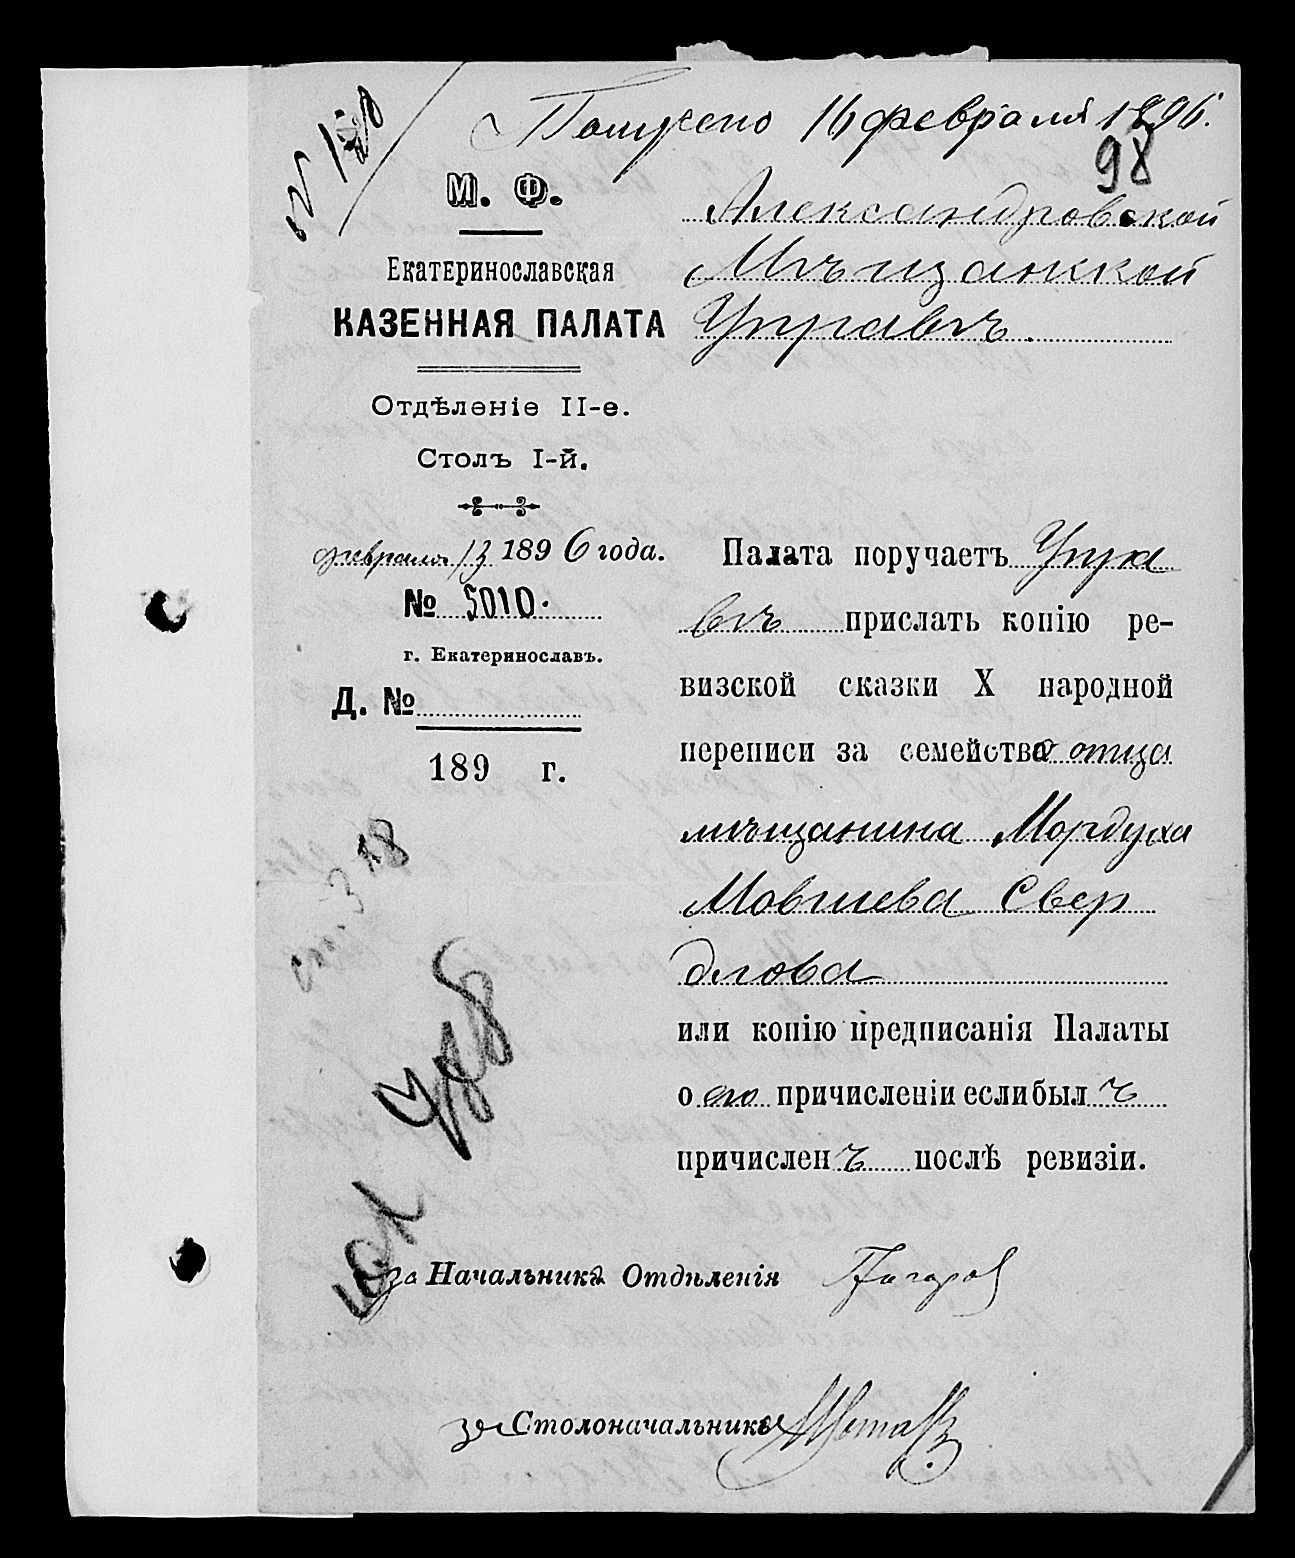 Получено 16 февраля 1896.
98
М. Ф.
Екатеринославская
КАЗЕННАЯ ПАЛАТА
Отдѣленіе II-е.
Столъ I-й.
февраля 13 1896 года.
№ 5010.
г. Екатеринославъ.
Д. №
189 г.
Александровской
Мѣщанккой
Управѣ.
Палата поручаетъ Упра
вѣ прислать копію ре-
визской сказки X народной
переписи за семейство отца
мѣщанина Мордуха
Мовшева Свер
длова
или копію предписанія Палаты
о его причисленіи если былъ
причисленъ послѣ ревизіи.
за Начальника Отдѣленія
за Столоначальника